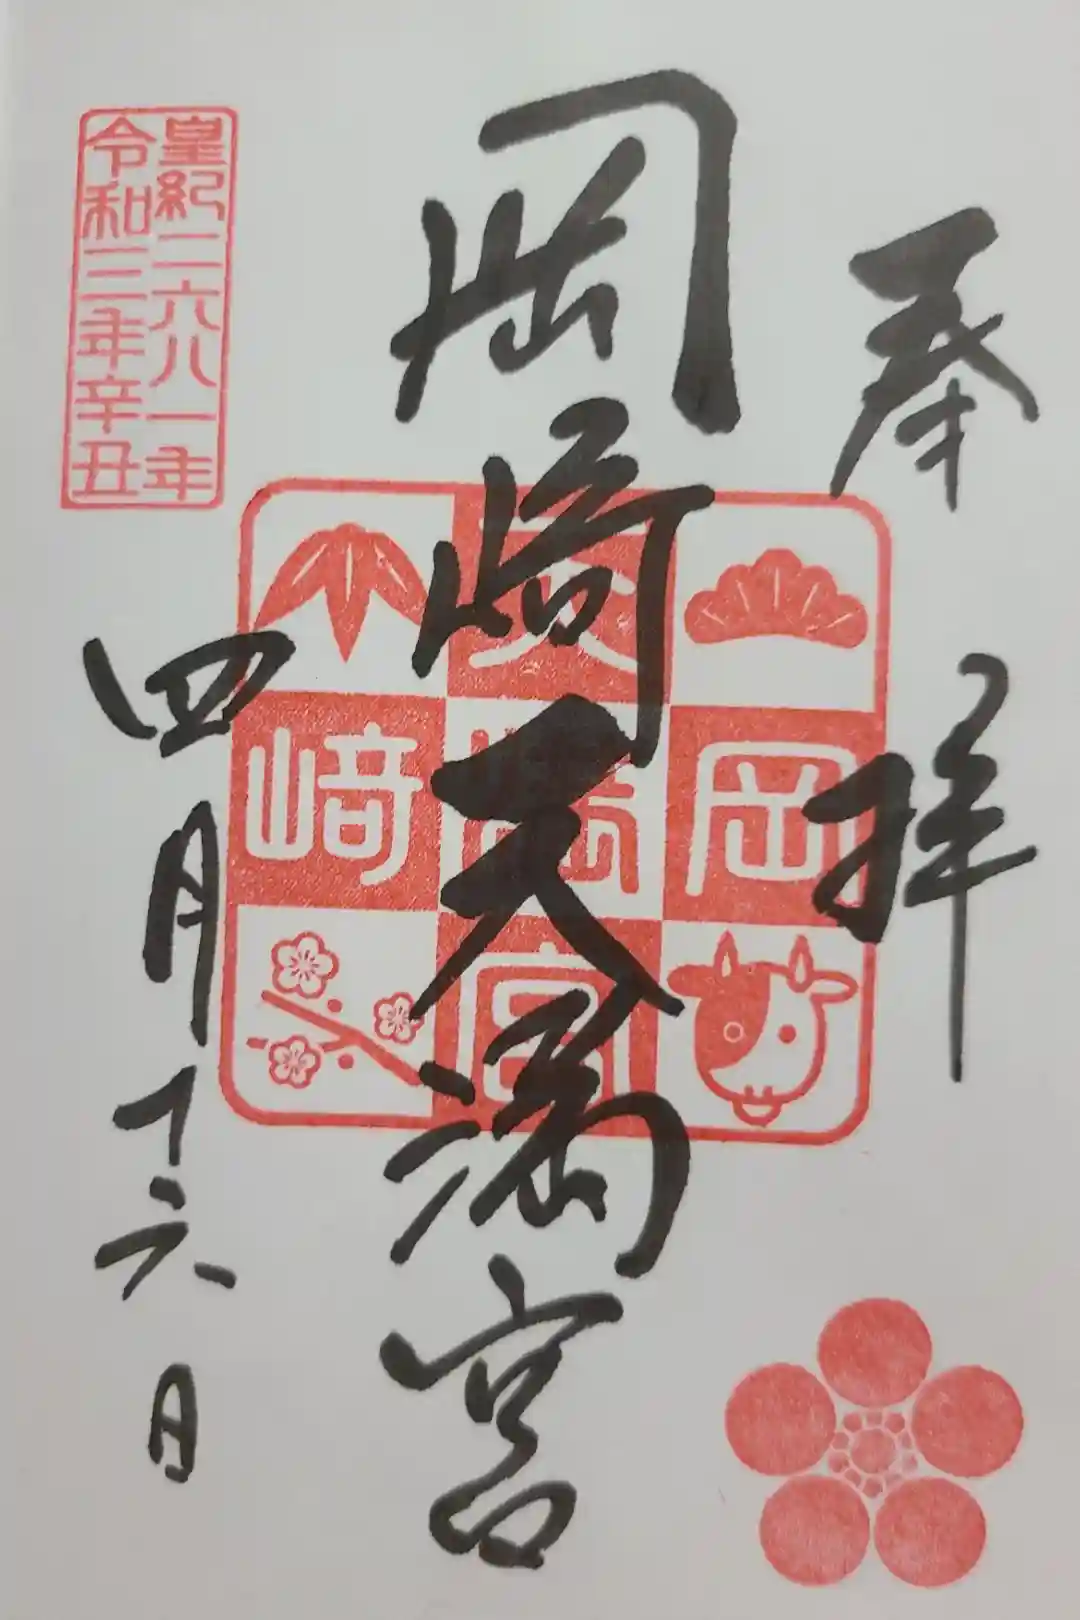 奉拝
岡崎天満宮
皇紀二六八一年
令和三年辛丑
四月十六日
岡
﨑
天
満
宮